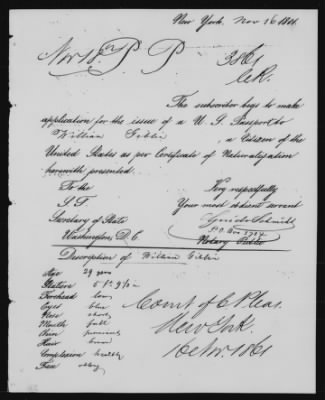 New York, Nov 16 1861.
Nov 18 P P
3861
The subscriber begs to make
application for the issue of a U. S. Passport to
William , a Citizen of the
United States as per Certificate of Naturalization
herewith presented.
To the
Secretary of State
Washington, D. C.
Very respectfully
Your most obedient servant
P.O. Box
Notary Public
Description of William
Age 29 years
Stature 5 ft
Forehead low
Eyes blue
Nose short
Mouth full
Chin
Hair brown
Complexion healthy
Face
Court of C Pleas
New York
16 Nov. 1861